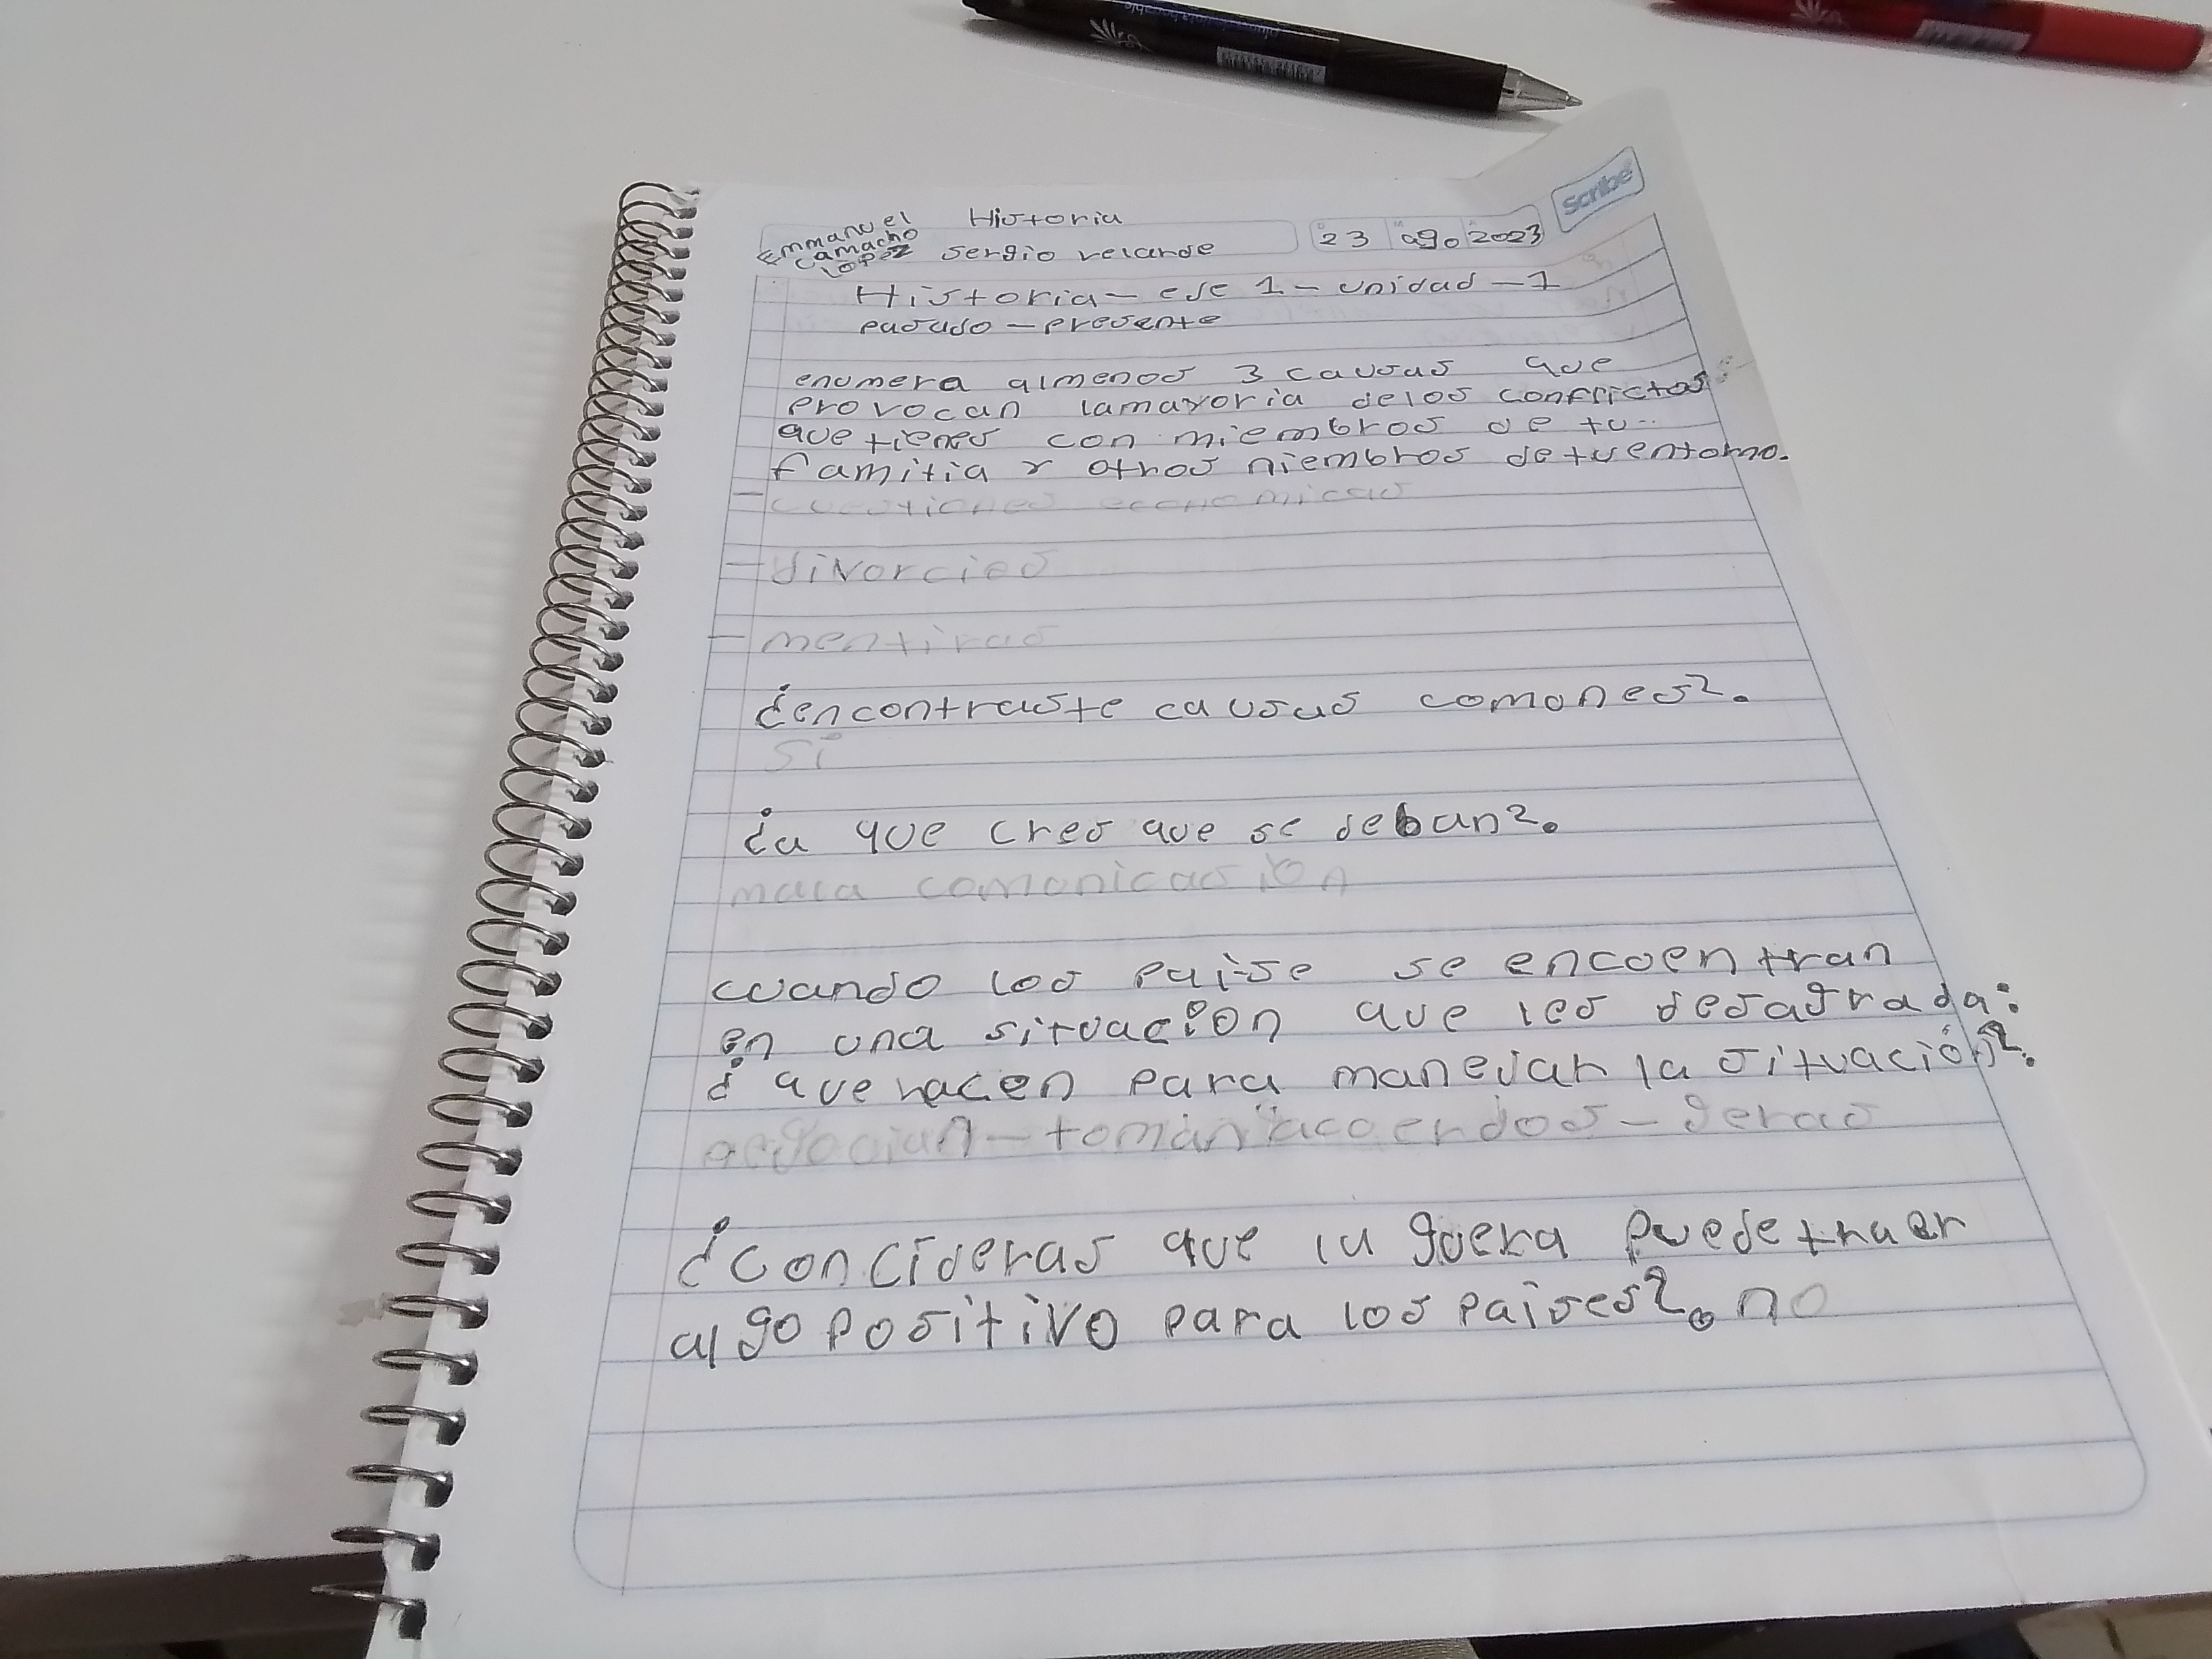 Scribe
Historia
Emmanuel
camacho
lopez
sergio velarde
23 ago 2023
Historia - eje 1 - unidad - 1
pasado - presente
enumera almenos 3 causas que
provocan lamayoria delos conflictos
que tienes con miembros de tu
familia y otros miembros detuentorno.
- cuestiones economicas
- divorcios
- mentiras
¿encontraste causas comones?.
si
¿a que creo que se deban?.
mala comonicasiòn
cuando los paise se encoentran
en una situacion que les desagrada:
¿ que hacen para manejar la situación?.
negocian - toman acoerdos - geras
¿concideras que la goera puede traer
algo positivo para los paises?. no